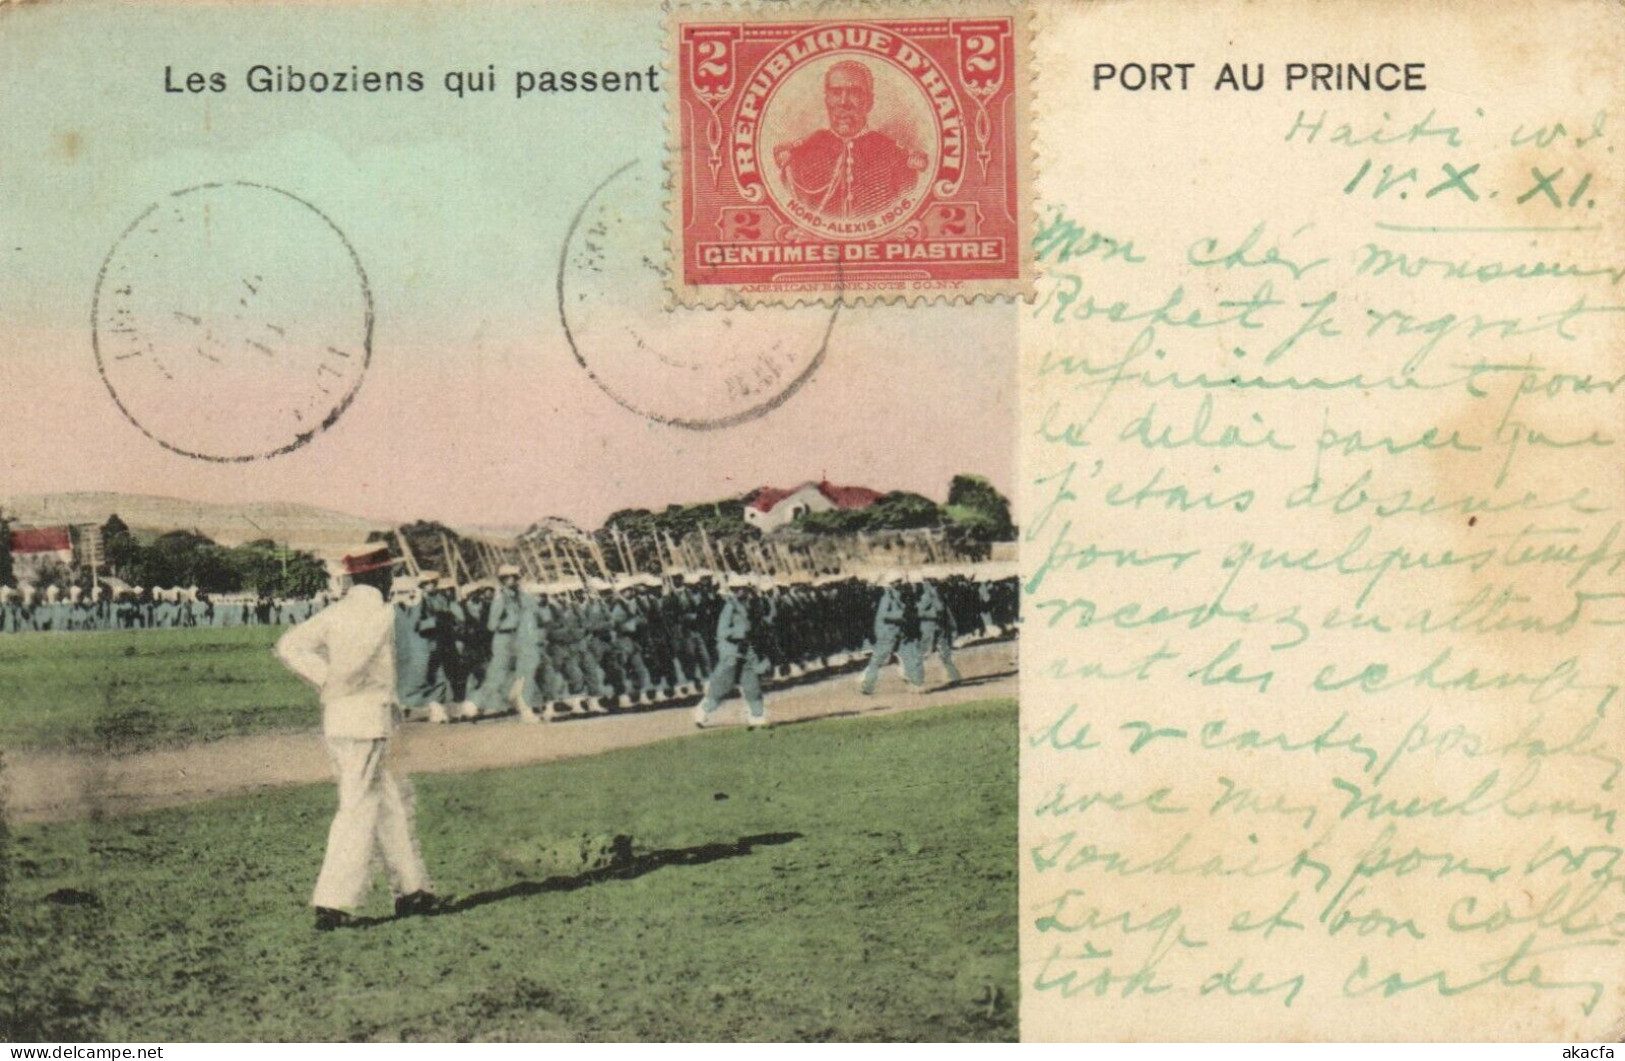 Les Giboziens qui passent
PORT AU PRINCE
2 REPUBLIQUE D'HAÏTI 2
NORD-ALEXIS. 1906.
2 2
CENTIMES DE PIASTRE
AMERICAN BANK NOTE CO. N.Y.
Haiti W.I.
IV. X. XI.
Mon chér monsieur
Rochet je regret
infiniment pour
le delaie parce que
j'etais absence
pour quelques temps
recevez en attend-
ant les echanges
de cartes postales
avec mes meilleurs
Souhaits pour
Large et bon collec
tion des cartes
akacfa